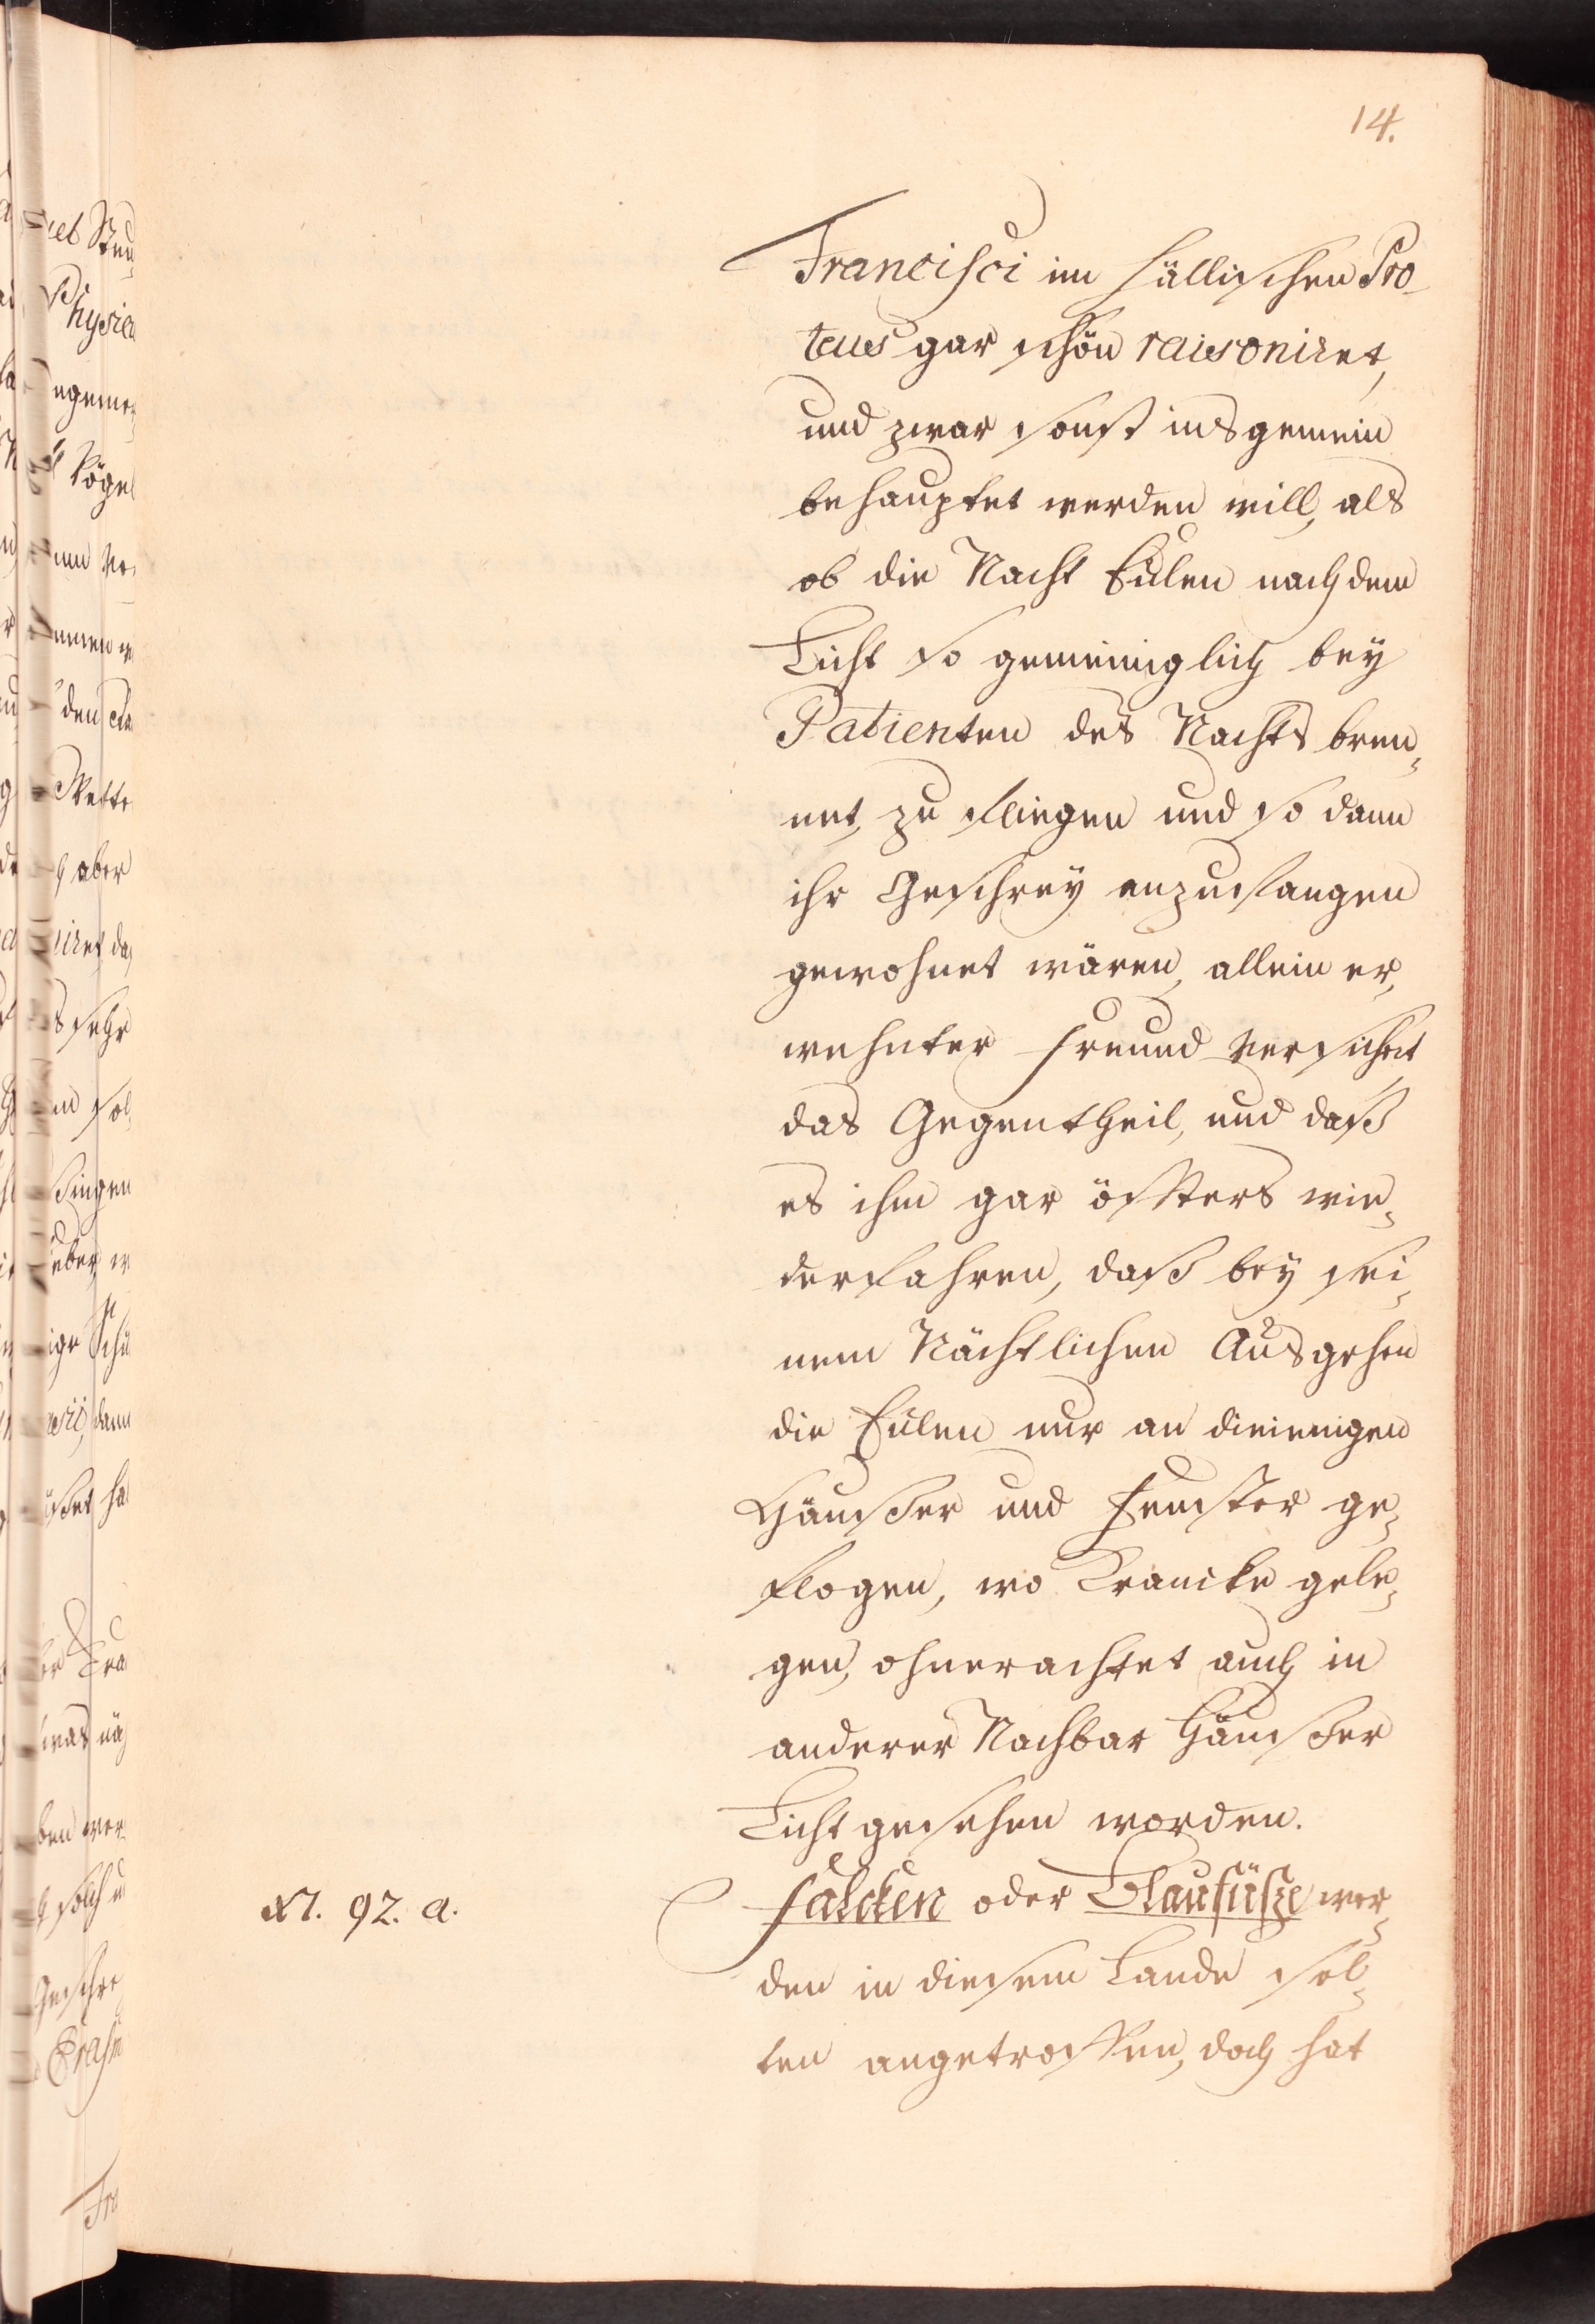 14.
Francisci im Höllischen Pro-
teus gar schön raisoniret,
und zwar sonst insgemein
behauptet werden will, als
ob die Nacht Eülen nach dem
Licht so gemeiniglich bey
Patienten des Nachts bren-
net, zu fliegen und so dann
ihr Geschrey anzufangen
gewohnet wären, allein er-
wehnter Freund versichert
das Gegentheil, und daß
es ihm gar öffters wie-
derfahren, daß bey sei-
nem Nächtlichen Ausgehen
die Eülen nur an dieienigen
Häusser und Fenster ge-
flogen, wo Krancke gele-
gen, ohnerachtet auch in
anderer Nachbar Häusser
Licht gesehen worden.
N. 92. a.
Falcken oder Blaufüsze wer-
den in diesem Lande sel-
ten angetroffen, doch hat